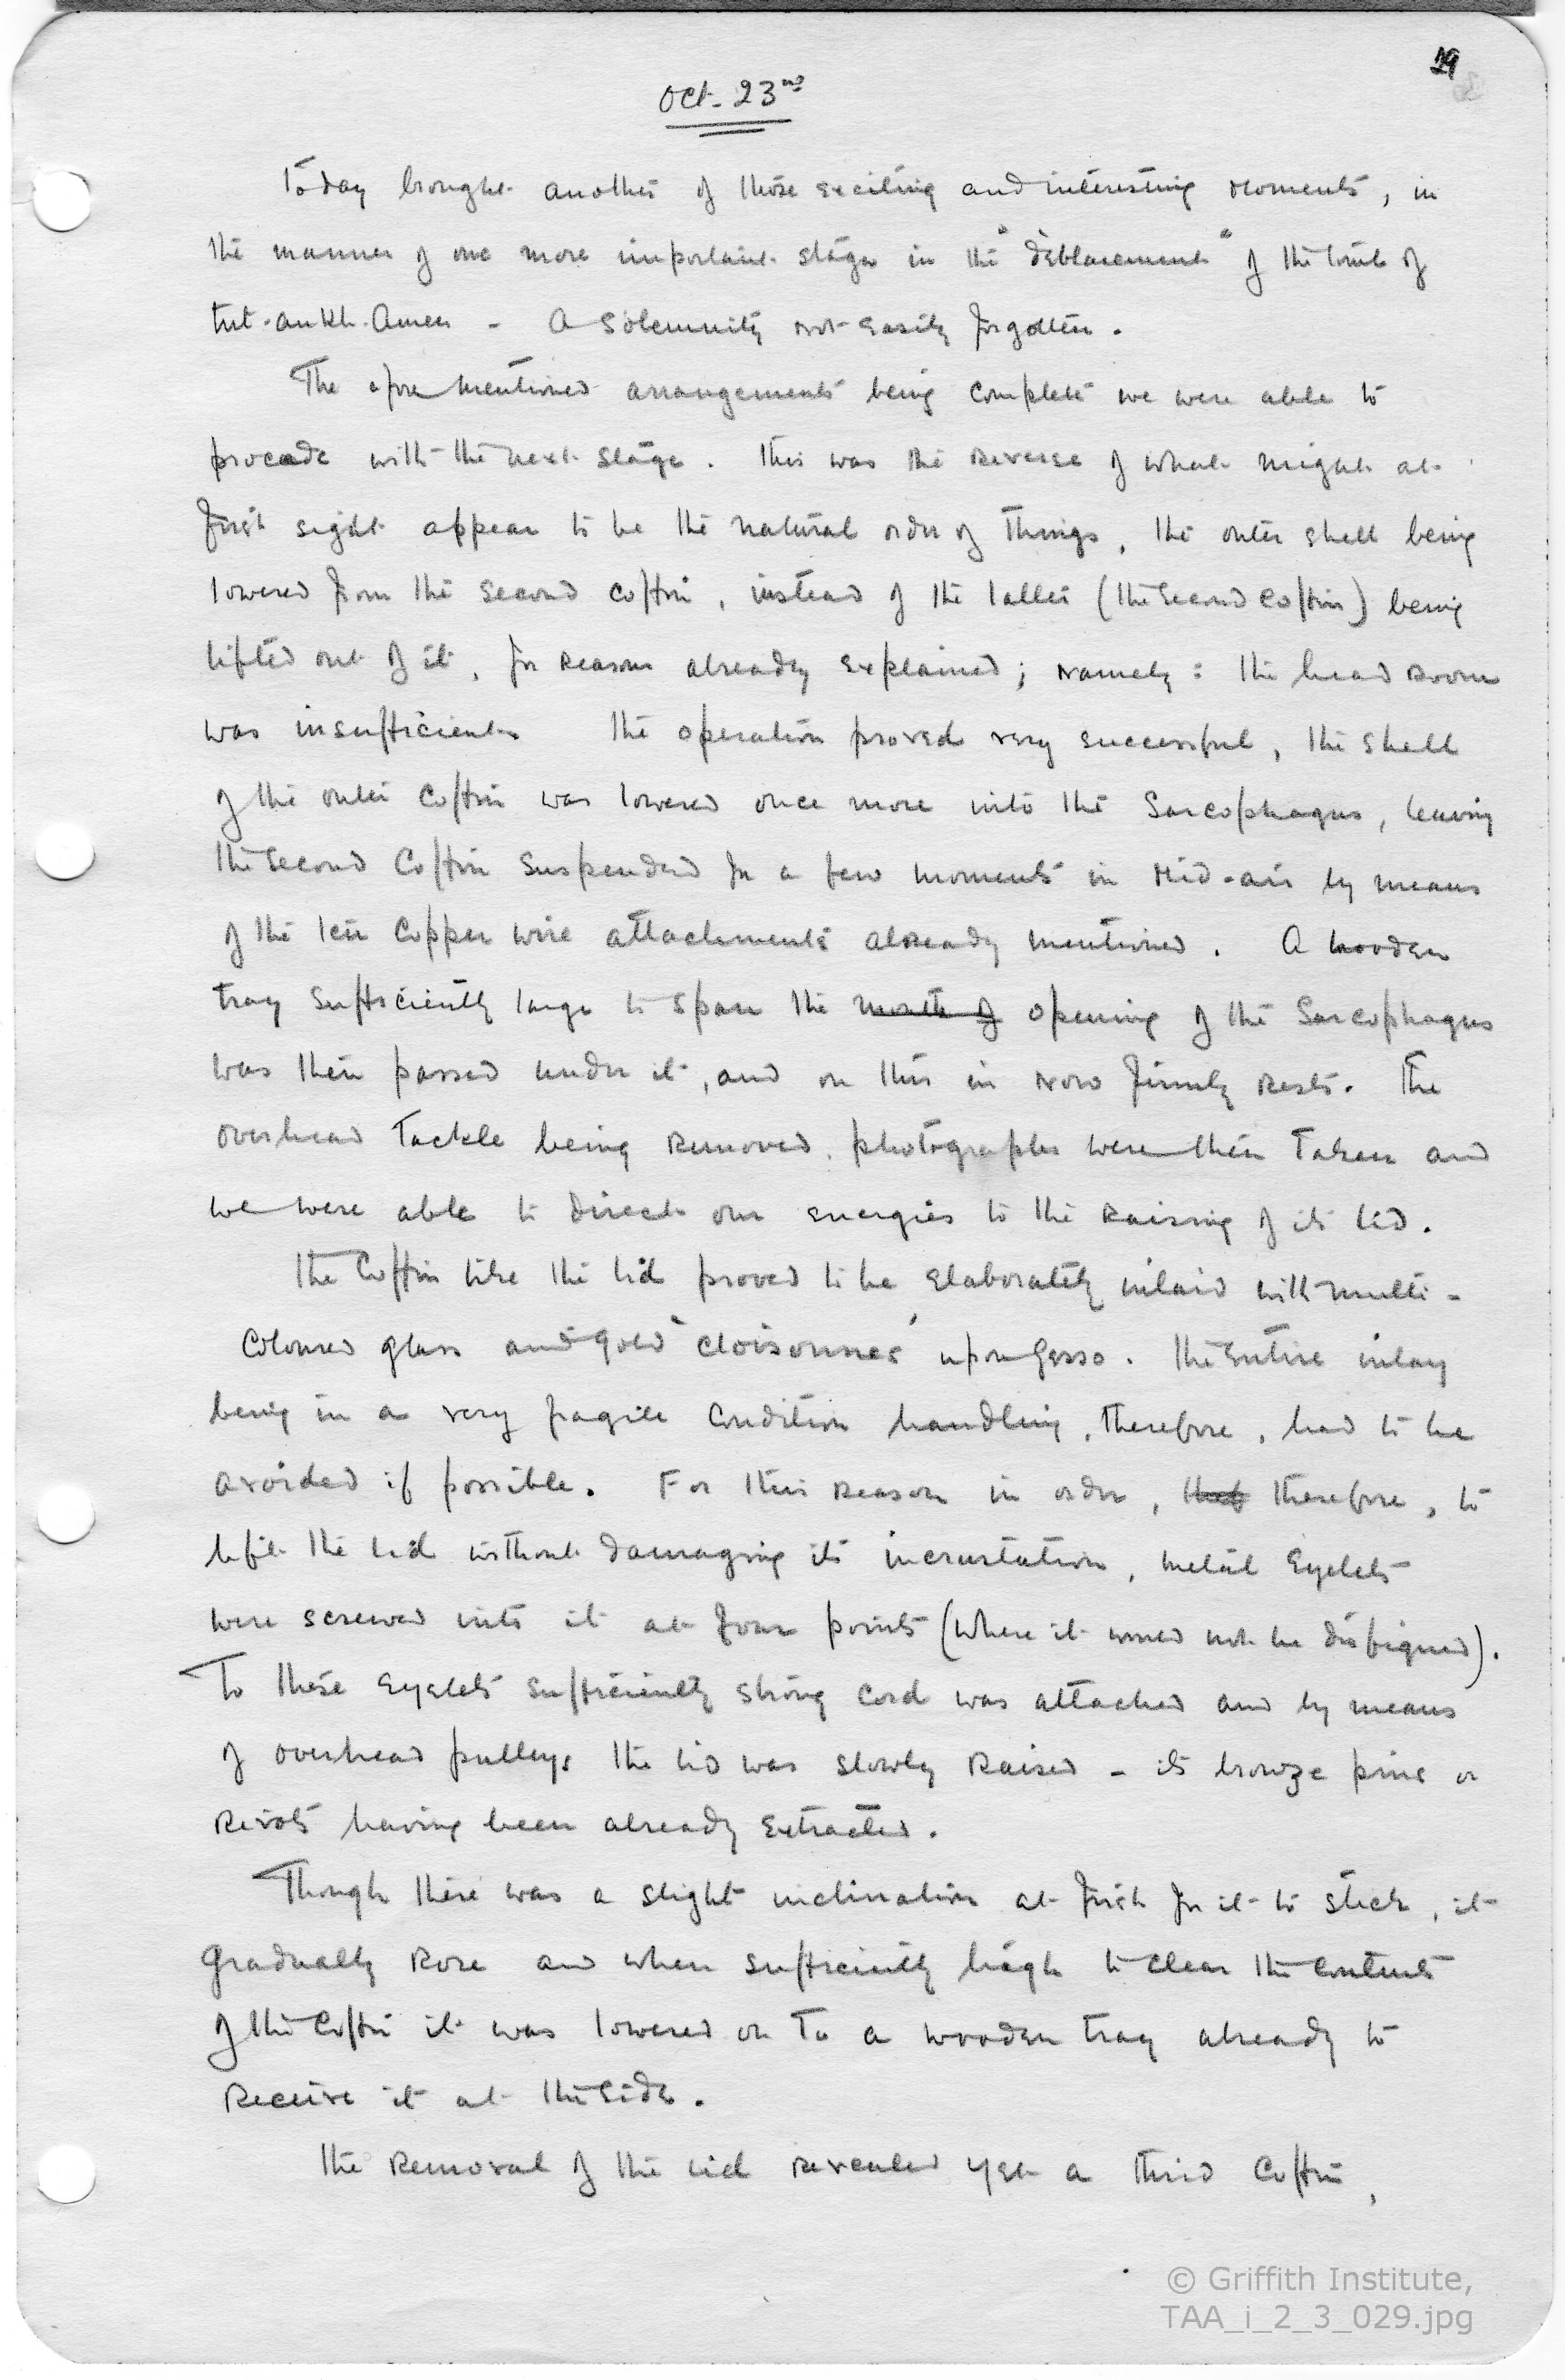 29
Oct. 23rd
Today brought another of those exciting and interesting moments, in
the manner of one more important stage in the "déblacement" of the tomb of
Tut.ankh.Amen - A solemnity not easily forgotten.
The afore mentioned arrangements being complete we were able to
procede with the next stage. This was the reverse of what might at
first sight appear to be the natural order of things, the outer shell being
lowered from the second coffin, instead of the latter (the second coffin) being
lifted out of it, for reasons already explained; namely: the head room
was insufficient. The operation proved very successful, the shell
of the outer coffin was lowered once more into the Sarcophagus, leaving
the second coffin suspended for a few moments in mid-air by means
of the ten copper wire attachments already mentioned. A wooden
tray sufficiently large to span the mouth of opening of the Sarcophagus
was then passed under it, and on this in now firmly rests. The
overhead tackle being removed, photographs were then taken and
we were able to direct our energies to the raising of its lid.
The Coffin like the lid proved to be elaborately inlaid with multi-
coloured glass and gold 'cloisonnes' upon Gesso. The entire inlay
being in a very fragile condition handling, therefore, had to be
avoided if possible. For this reason in order, that therefore, to
lift the lid without damaging its incrustation, metal eyelets
were screwed into it at four points (where it would not be disfigured).
To these eyelets sufficiently strong cord was attached and by means
of overhead pulleys the lid was slowly raised - its bronze pins or
rivets having been already extracted.
Though there was a slight inclination at first for it to stick, it
gradually rose and when sufficiently high to clear the contents
of the coffin it was lowered on to a wooden tray already to
receive it at the side.
The removal of the lid revealed yet a third coffin,
© Griffith Institute,
TAA_i_2_3_029.jpg